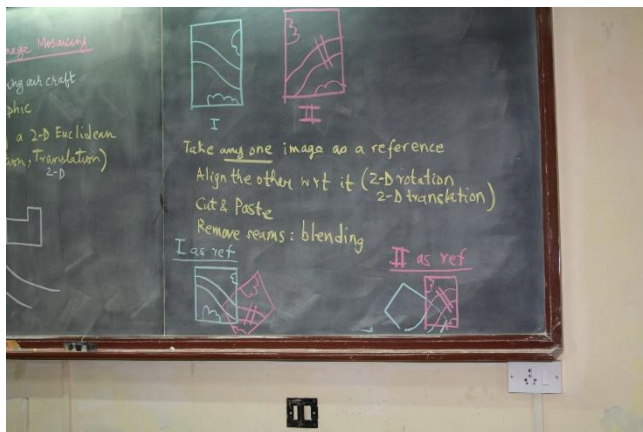 Image Mosaicing
air craft
phic
a 2-D Euclidean
Translation)
2-D
I
II
Take any one image as a reference
Align the other wrt it (2-D rotation
2-D translation)
Cut & Paste
Remove seams: blending
I as ref
II as ref